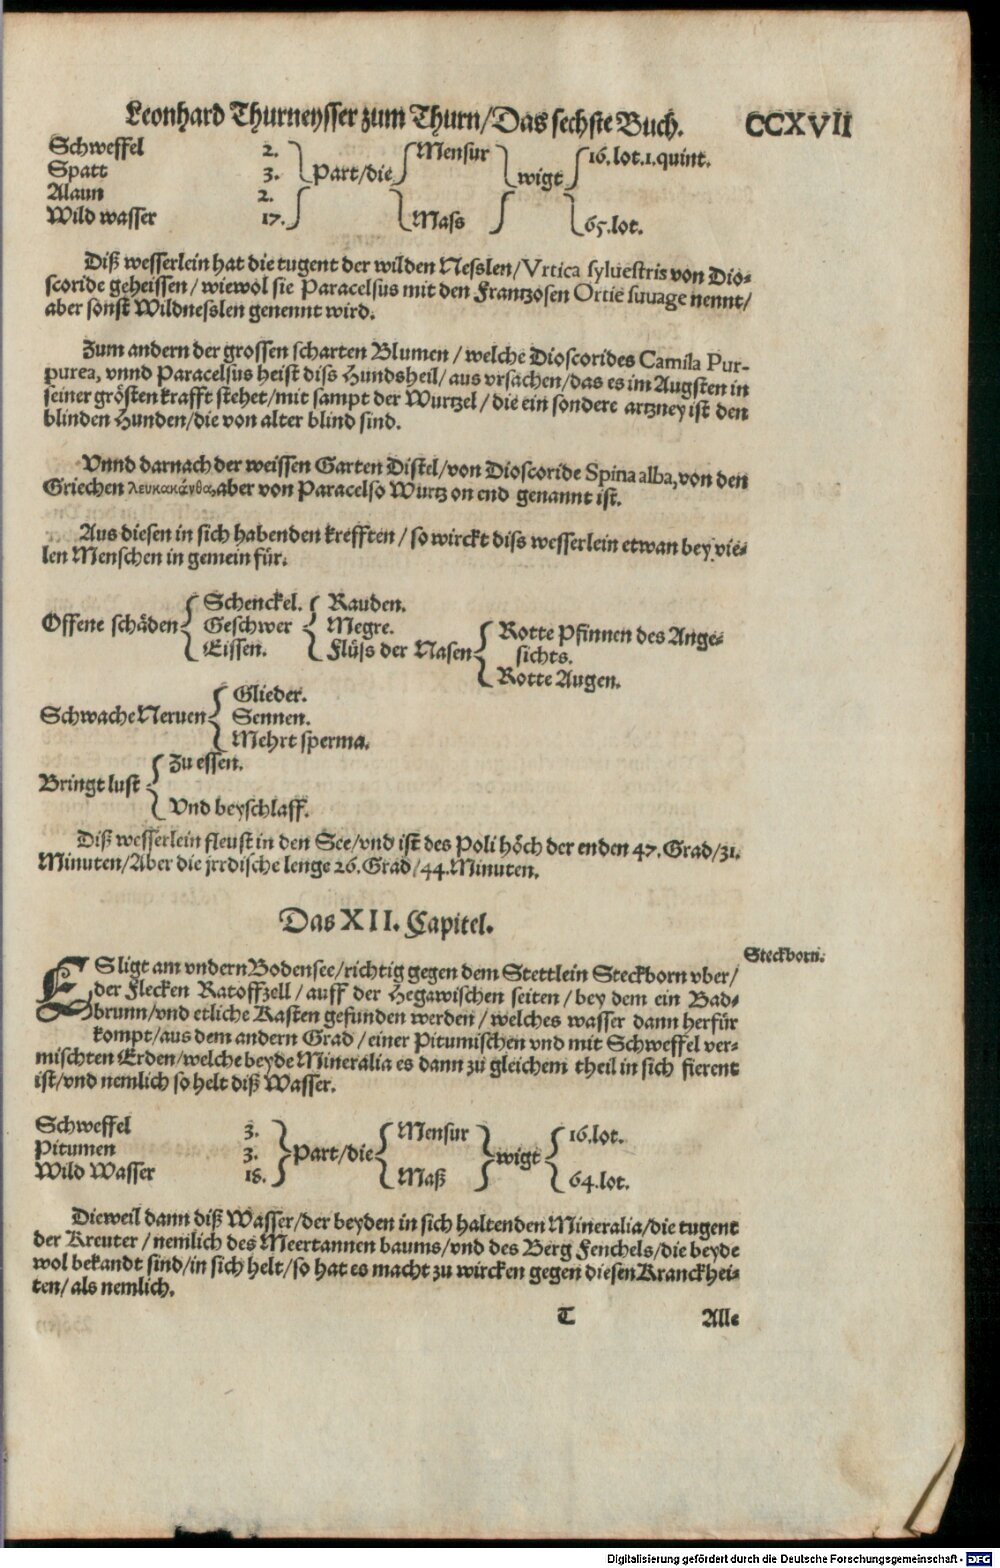 Leonhard Thurneysser zum Thurn/Das sechste Buch. CCXVII
Schweffel 2. Mensur 16.lot.1.quint.
Spatt 3. Part/die wigt
Alaun 2.
Wild wasser 17. Mass 65.lot.
Diß wesserlein hat die tugent der wilden Nesslen/Vrtica syluestris von Dio-
scoride geheissen/wiewol sie Paracelsus mit den Frantzosen Ortie suuage nennt/
aber sonst Wildnesslen genennt wird.
Zum andern der grossen scharten Blumen/welche Dioscorides Camila Pur-
purea, vnnd Paracelsus heist diss Hundsheil/aus vrsachen/das es im Augsten in
seiner grösten krafft stehet/mit sampt der Wurtzel/die ein sondere artzney ist den
blinden Hunden/die von alter blind sind.
Vnnd darnach der weissen Garten Distel/von Dioscoride Spina alba, von den
Griechen λευκακάνθα, aber von Paracelso Wurtz on end genannt ist.
Aus diesen in sich habenden krefften/so wirckt diss wesserlein etwan bey vie-
len Menschen in gemein für.
Offene schäden Schenckel. Rauden.
Geschwer Megre.
Eissen. Flüss der Nasen Rotte Pfinnen des Ange-
sichts.
Rotte Augen.
Schwache Neruen Glieder.
Sennen.
Mehrt sperma.
Bringt lust Zu essen.
Vnd beyschlaff.
Diß wesserlein fleust in den See/vnd ist des Poli höch der enden 47.Grad/31.
Minuten/Aber die jrrdische lenge 26.Grad/44.Minuten.
Das XII. Capitel.
Steckborn.
ES ligt am vndern Bodensee/richtig gegen dem Stettlein Steckborn vber/
der Flecken Ratoffzell/auff der Hegawischen seiten/bey dem ein Bad-
brunn/vnd etliche Kasten gefunden werden/welches wasser dann herfür
kompt/aus dem andern Grad/einer Pitumischen vnd mit Schweffel ver-
mischten Erden/welche beyde Mineralia es dann zu gleichem theil in sich fierent
ist/vnd nemlich so helt diß Wasser.
Schweffel 3. Mensur 16.lot.
Pitumen 3. Part/die wigt
Wild Wasser 18. Maß 64.lot.
Dieweil dann diß Wasser/der beyden in sich haltenden Mineralia/die tugent
der Kreuter/nemlich des Meertannen baums/vnd des Berg Fenchels/die beyde
wol bekandt sind/in sich helt/so hat es macht zu wircken gegen diesen Kranckhei-
ten/als nemlich.
T Alle
Digitalisierung gefördert durch die Deutsche Forschungsgemeinschaft - DFG